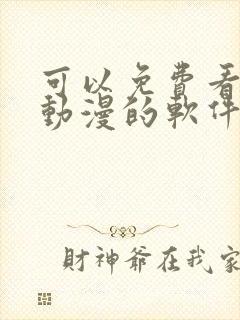 可以免費看
動漫的軟件
財神爺在我家